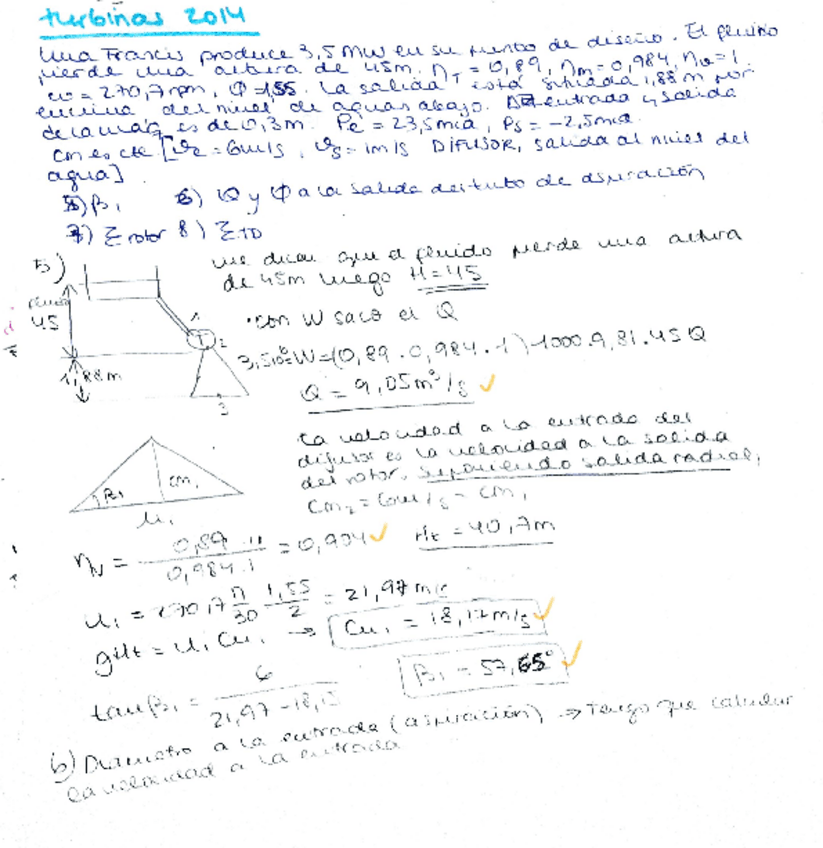 turbinas 2014
Una Francis produce 3,5 MW en su punto de diseño. El fluido
pierde una altura de 45m. ηT = 0,89, ηm = 0,984, ηv = 1
ω = 270,7 rpm, Φ = 1,55. La salida está situada 1,88 m por
encima del nivel de aguas abajo. entrada y salida
de la máq es de 0,3m. Pe = 23,5 mca, Ps = -2,5 mca.
Cm es cte [v2 = 6m/s, v3 = 1m/s DIFUSOR, salida al nivel del
agua]
5) β1 6) Q y Φ a la salida del tubo de aspiración
7) Σrotor 8) ΣTD
5)
me dicen que el fluido pierde una altura
de 45m luego H=45
45
1
T 2
• con W saco el Q
3,5·10⁶ W = (0,89 · 0,984 · 1) · 1000 · 9,81 · 45 Q
1,88 m
Q = 9,05 m³/s ✓
3
La velocidad a la entrada del
difusor es la velocidad a la salida
del rotor, suponiendo salida radial,
Cm2 = 6m/s = Cm1
β1 cm1
u1
ηN = 0,89 · / 0,984 · 1 = 0,904 ✓ Ht = 40,7m
u1 = 270,7 π/30 1,55/2 = 21,97 m/s
gHt = u1 Cu1 → Cu1 = 18,17 m/s ✓
tan β1 = 6 / 21,97 - 18,17 β1 = 57,65° ✓
6) Diámetro a la entrada (aspiración) → Tengo que calcular
la velocidad a la entrada